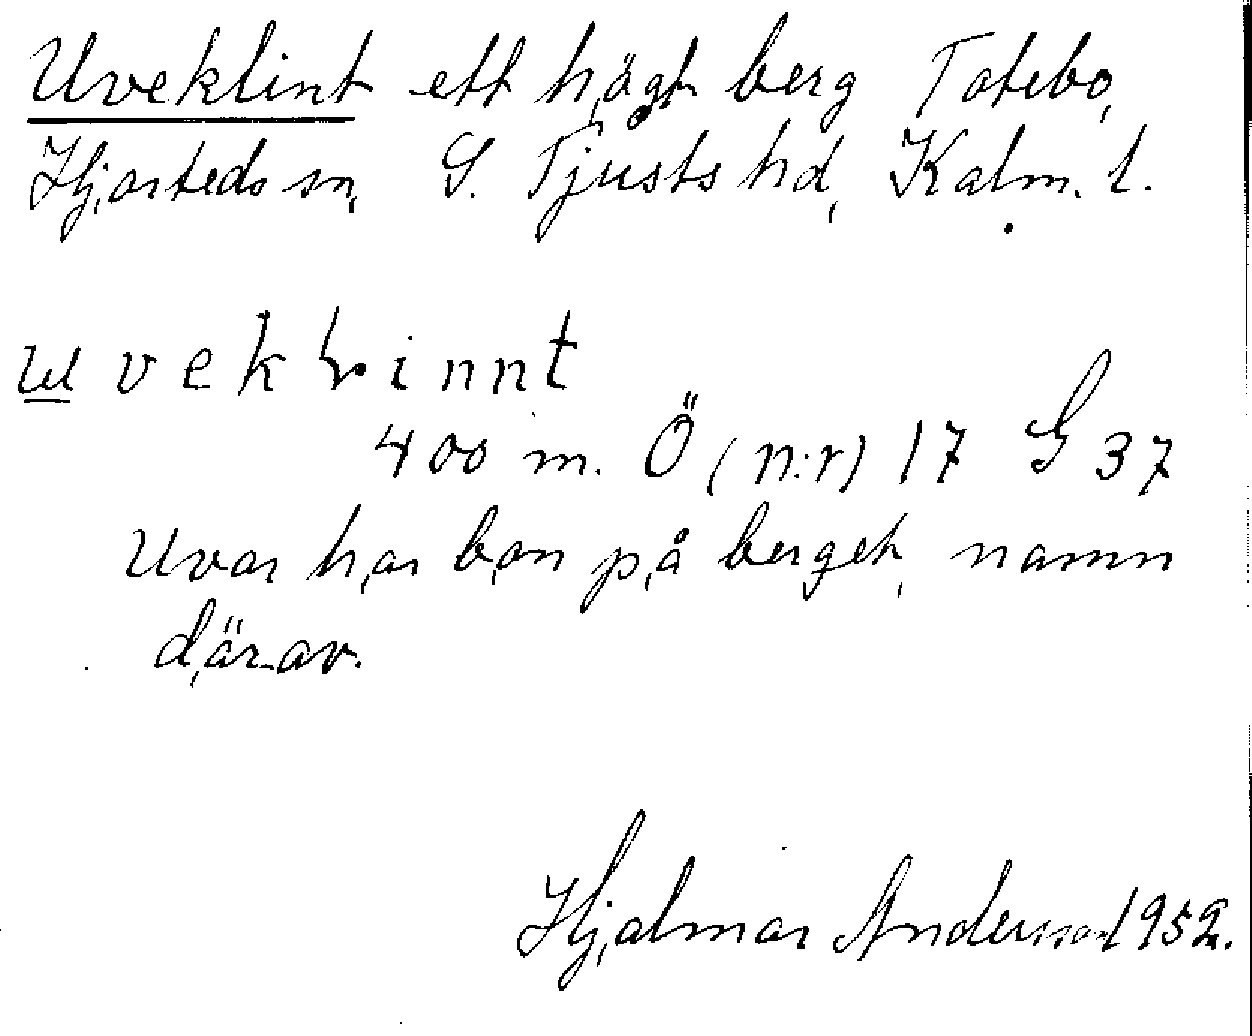 Uveklint ett högt berg Totebo,
Hjorteds sn, S. Tjusts hd, Kalm. l.
vekɽinnt
400 m. Ö (n:r) 17 G 37
Uvar har bon på berget, namn
därav.
Hjalmar Andersson 1952.